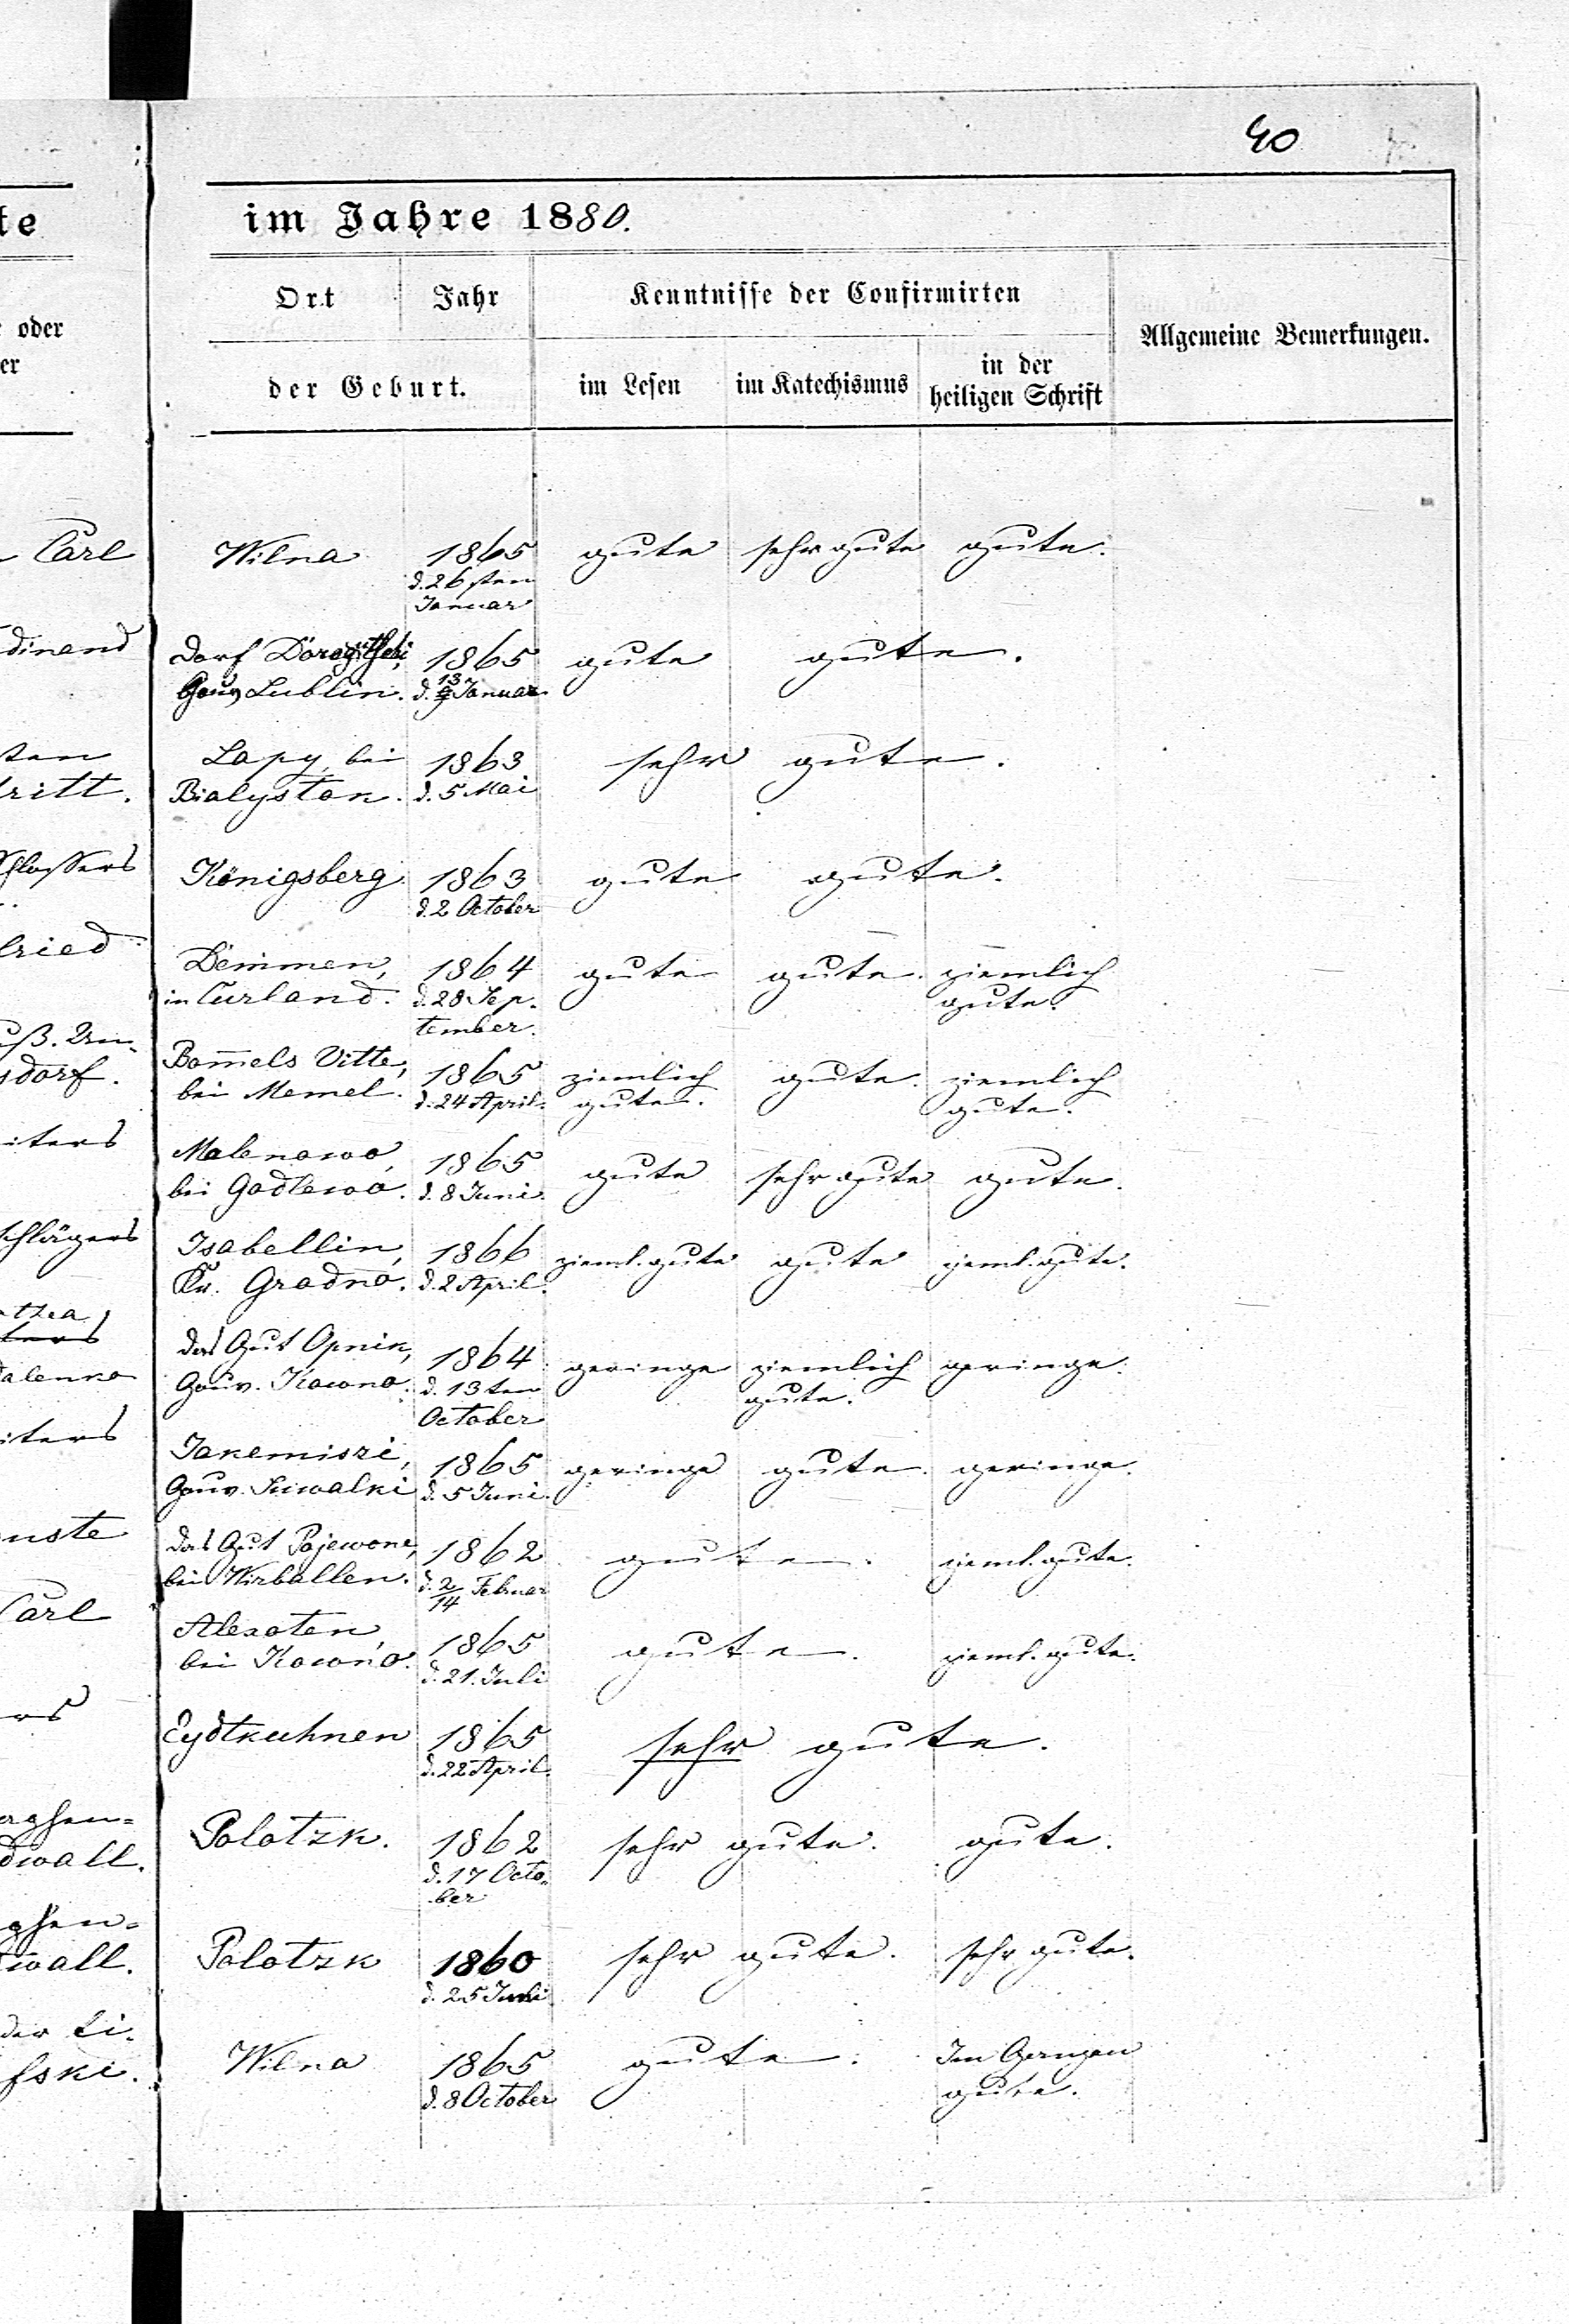 40
te
im Jahre 1880.
Ort
Jahr
Kenntnisse der Confirmirten
Allgemeine Bemerkungen.
oder
er
der Geburt.
im Lesen
im Katechismus
in der
heiligen Schrift
Carl
Wilna
1865
gute
sehr gute
gute.
d. 26 sten
Januar
dinand
Dorf
1865
gute
gute.
Gouv Lublin.
Januar
sten
Lapy, bei
1863
sehr gute.
tritt.
Bialystok.
d. 5 Mai
schlossers
Königsberg
1863
gute
gute.
d. 2 October
fried
Demmen,
1864
gute
gute.
ziemlich
in Curland.
d. 28 Sep-
gute.
tember.
Bom̄els Vitte,
1865
ziemlich
gute.
ziemlich
sdorf.
bei Memel.
d. 24 April.
gute.
gute.
iters
Malenowo,
1865
gute
sehr gute
gute.
bei Godlewo.
d. 8 Juni.
schlägers
Isabellin,
1866
zieml. gute
gute
zieml. gute.
Kr. Grodno.
d. 2 April.
thea
ters
das Gut Opnik,
1864
geringe
ziemlich
geringe.
Gouv. Kowno.
d. 13 ten
gute.
October
iters
Jakemiszi,
1865
geringe
gute.
geringe.
Gouv. Suwalki
d. 5 Juni.
uste
das Gut Pojewone,
1862
gute.
zieml. gute.
bei Wirballen.
d. 2/14 Februar
Carl
Alexoten,
1865
gute.
zieml. gute.
bei Kowno.
d. 21. Juli
rs
Eydtkuhnen
1865
sehr gute.
d. 22 April.
Polotzk.
1862
sehr gute.
gute.
dwall.
d. 17 Octo-
ber
Polotzk
1860
sehr gute.
sehr gute.
wall.
d. 25 Juni
der Li-
Wilna
1865
gute.
Im Ganzen
fski.
d. 8 October
gute.